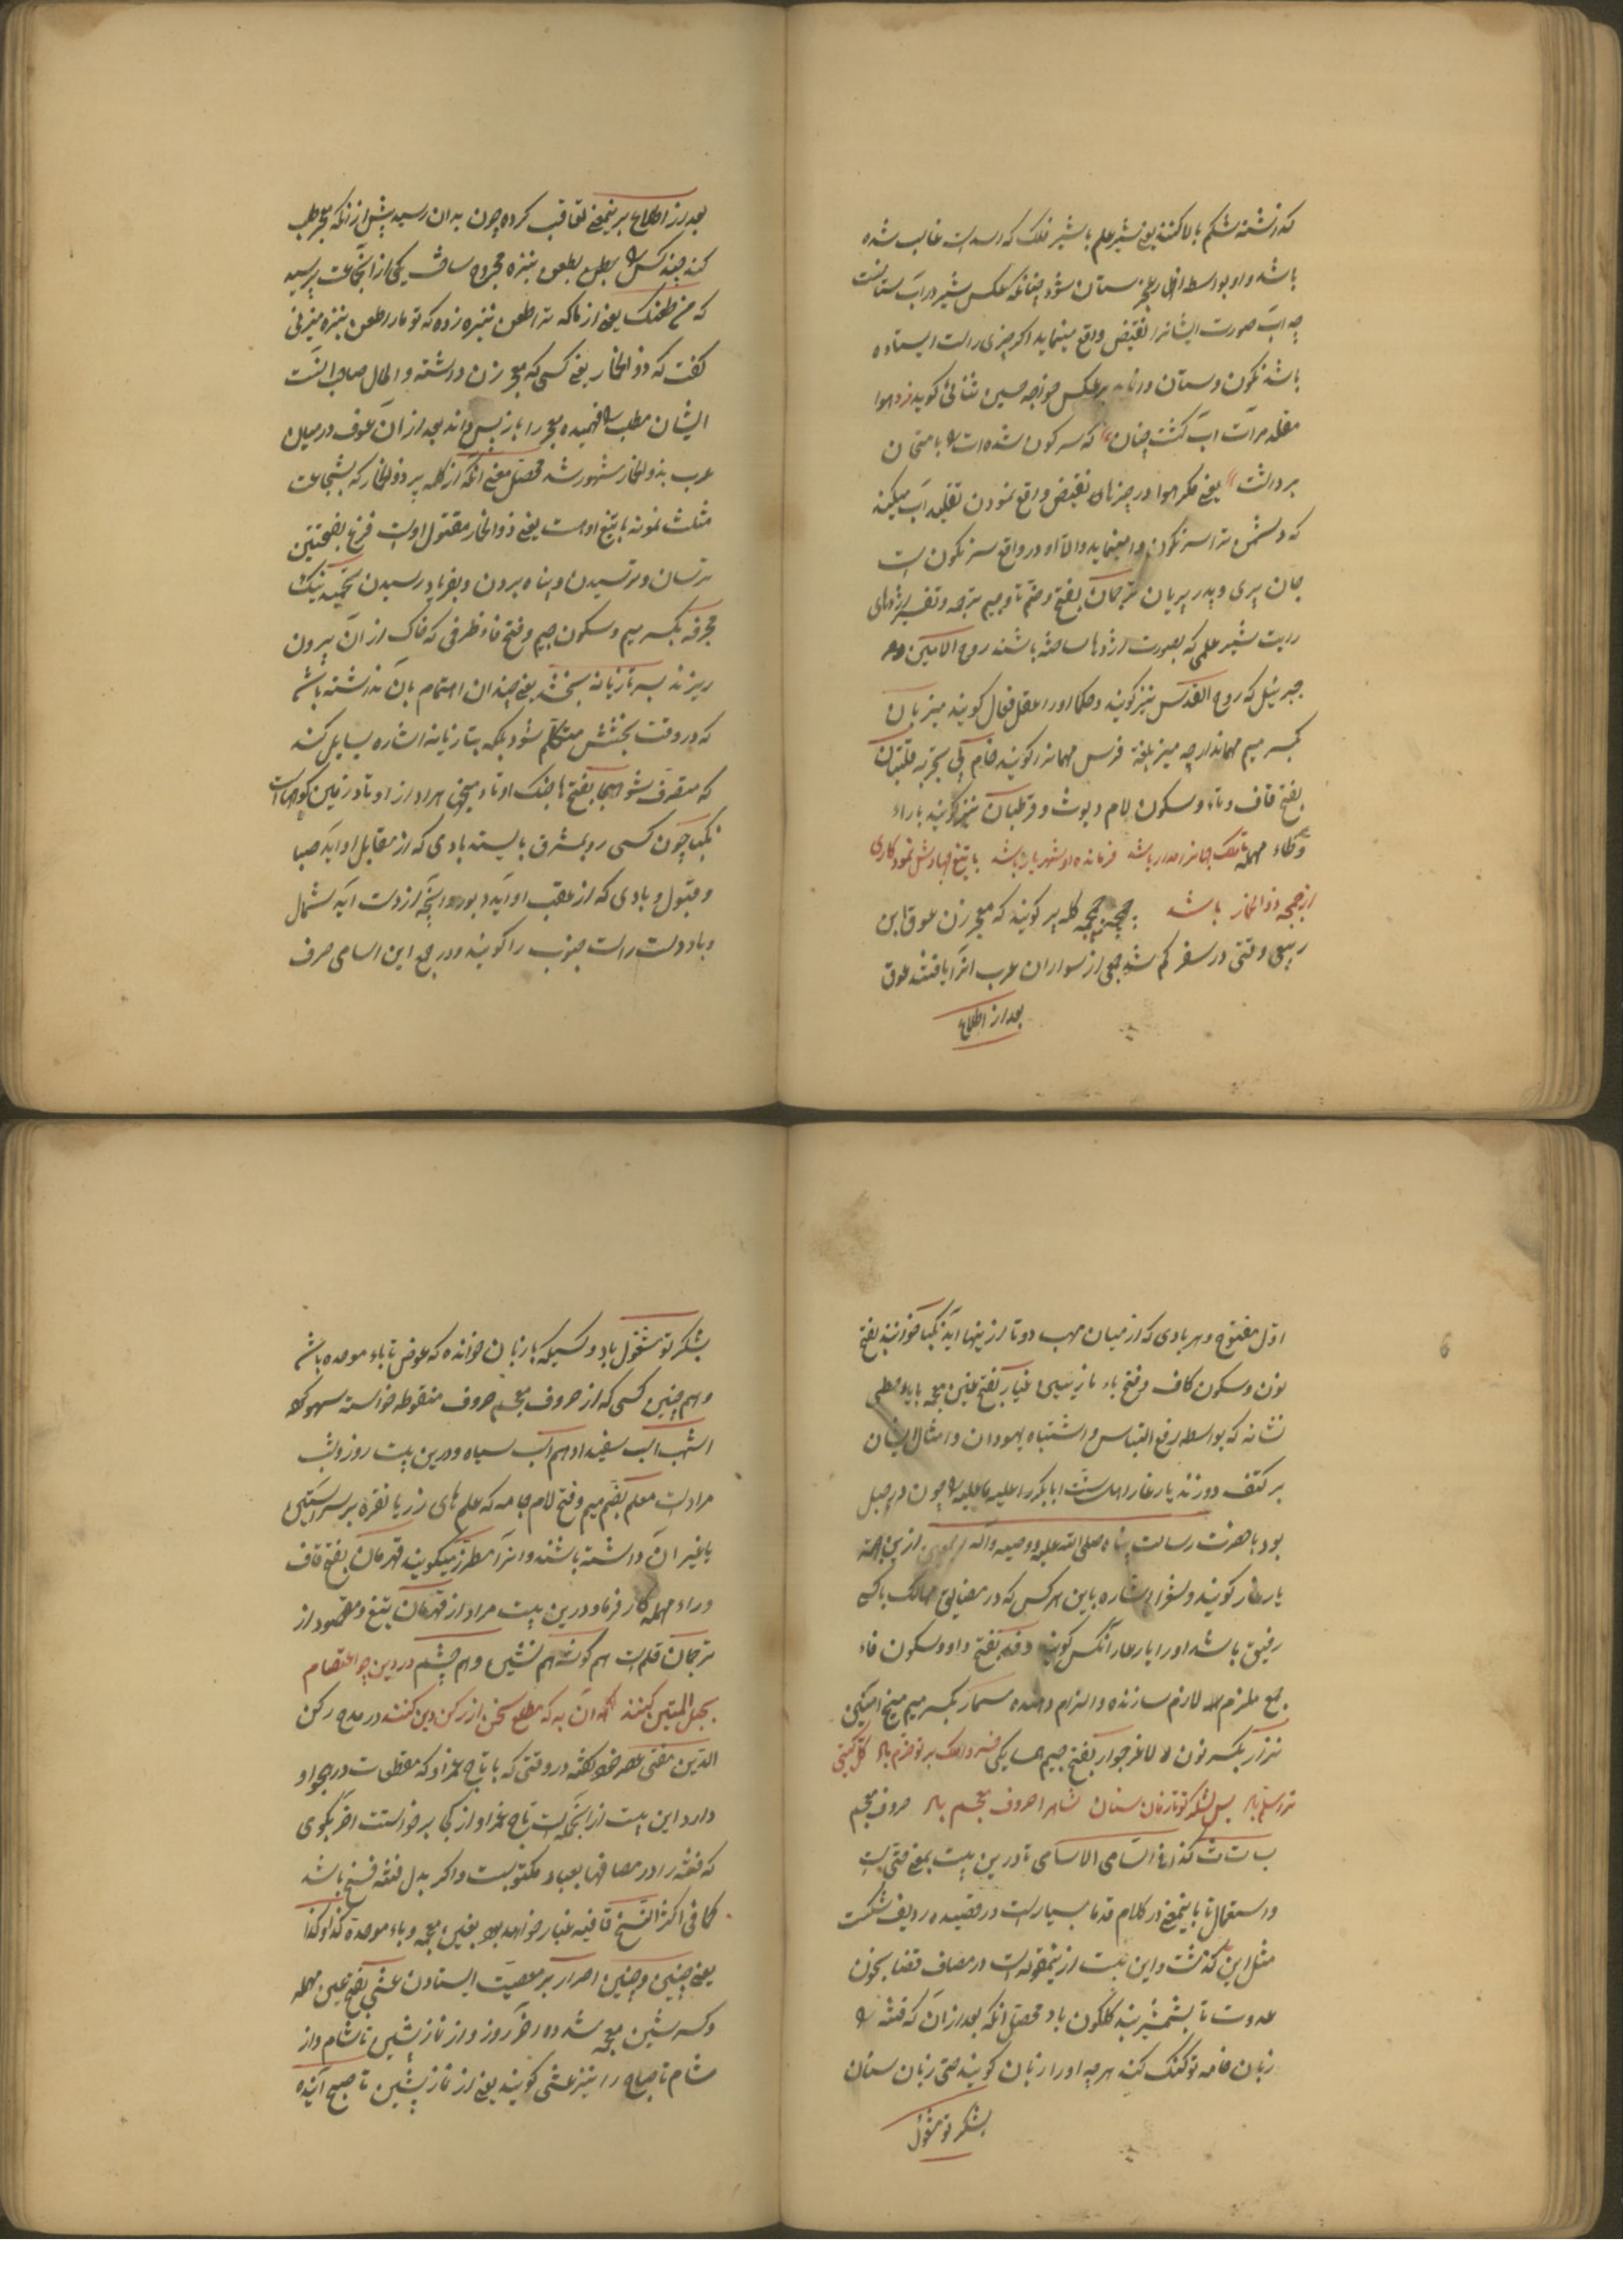 باشد و او بواسطه اظهار عجز ستان شود چنانکه عکس شیر در آب ستانست
چه آب صورت ایشانرا نقیض واقع مینماید اگر چیزی راست ایستاده
باشد نکون و ستان در نماید برعکس خواجه حسین ثنائی گوید زد هوا
مقلد مرآت آب گشت چنان که سرکون شده است با متحان
برداشت یعنی مکر هوا در چیزهای نقیض واقع نمودن تقلید آب میکند
که دشمن ترا سرنکون وا مینماید والا او در واقع سرنکون است
جان پری و پدر پریان ترجمان بفتح و ضم تا و جیم مترجمه و تفسیر اژدهای
رایت شیر علمی که بصورت اژدها ساخته باشند روح الامین
جبرئیل که روح القدس نیز گویند و حکما او را عقل فعال گویند میزبان
بکسر میم مهماندار چه میز بلغة فرس مهمانرا گویند خام کی بتجربه قلتبان
بفتح قاف و تا و سکون لام دیوث و قرطبان نیز گویند با راء
و طاء مهمله تا ملک جهانرا مدار باشد فرمانده او شهریار باشد با تیغ جهادش نمود کاری
از جمجمه ذوالخمار باشد جمجمه کله سر گویند که معجر زن عوف ابن
ربیع وقتی در سفر کم شد جمعی از سواران عرب آنرا یافتند عوف
بعد از اطلاع
بعد از اطلاع بر اینمعنی تعاقب کرده چون بدان رسید پیش از آنکه معجر طلب
کند چند کس را بطعن نیزه مجروح ساخت یکی از آنجماعت پرسید
که من طعنک یعنی از ما که ترا طعن نیزه زده که تو ما را طعن نیزه میزنی
گفت که ذوالخمار یعنی کسی که معجر زن داشته و الحال صاحب آنست
ایشان مطلب را فهمیده معجر را باز پس داند بعد از آن عوف در میان
عرب بذوالخمار مشهور شد محصل معنی آنکه از کله پر ذوالخمار که بشجاعت
مثلست نمونه با تیغ اوست یعنی ذوالخمار مقتول اوست فزع بفتحتین
ترسان و ترسیدن و پناه بردن و بفریاد رسیدن
مجرفه بکسر میم و سکون جیم و فتح فاء ظرفی که خاک از آن بیرون
ریزند بسر تازیانه بخشد یعنی چندان اهتمام بآن نداشته باشد
که در وقت بخشش متکلم شود بلکه بتازیانه اشاره بسایل کند
که متصرف شو هیجا بفتح ها جنک اوتاد میخها مراد از اوتاد زمین کوههاست
نکبا چون کسی رو بمشرق بایستد بادی که از مقابل او آید صبا
و قبول و بادی که از عقب او آید دبور و آنچه از دست آید شمال
و باد دست راست جنوب را گویند و در جمع این اسامی حرف
اول مفتوح و هر بادی که از میان مهب دو تا از اینها آید نکبا خوانند بفتح
نون و سکون کاف و فتح باء غیار بفتح غین معجمه با یاء حطی
نشانه که بواسطه رفع التباس و اشتباه یهودان و امثال ایشان
بر کتف دوزند یار غار اهل سنت ابابکر را چون در جبل
بود با حضرت رسالت پناه صلی الله علیه و آله ازین جهة
یار غار گویند و شعرا اشاره باین هر کس که در مضایق مهالک با کسی
رفیق باشد او را یار غار آنکس گویند وقد بفتح واو و سکون فاء
جمع ملزم لازم سازنده و الزام دهنده مسمار بکسر میم میخ آهنین
نزار بکسر نون لاغر جوار بفتح جیم همسایگی
سنان حروف معجم باد حروف معجم
ب ت ث کذا فی السامی الاسامی تا درین بیت بمعنی حتی است
و استعمال تا باینمعنی در کلام قدما بسیار است در قصیده ردیف شکست
مثل این گذشت و این بیت از اینمقوله است در مصاف قضا بخون
عدوت تا بشمشیر بید کلکون باد محصل آنکه بعد از آن که فتنه را
زبان خامه تو کنک کند هر چه او را زبان گویند حتی زبان سنان
بشکر تو مشغول
بشکر تو مشغول باد و کسیکه با زبان خوانده که عوض تا باء موحده باشد
و همچنین کسی که از حروف معجم حروف منقوطه خواسته سهو کرده
اشهب اسب سفید ادهم اسب سیاه و درین بیت روز و شب
مراد است معلم بضم میم و فتح لام جامه که علم های زر یا نقره بر سر آستین
یا غیر آن داشته باشند و آنرا مطرز میگویند قهرمان بفتح قاف
و راء مهمله کار فرما و درین بیت مراد از قهرمان تیغ و مقصود از
ترجمان قلم است هم گوشه همنشین و هم چشم در دین چو اعتصام
بحبل المتین کنند آن به که مطلع سخن از رکن دین کنند در مدح رکن
الدین مفتی عصر خود گفته در وقتی که با تاج عمزاد که مقطعات در هجو او
دارد این بیت از آنجمله است تاج عمزاد از کجا برخواست آخر بگوی
که فتنه را در مصافها بعباد مکتوبست و اگر بدل فتنه فسخ باشد
کما فی اکثر النسخ قافیه غبار خواهد بود بغین معجمه و باء موحده کذا و کذا
یعنی چنین و چنین اصرار بر معصیت ایستادن عشی بفتح عین مهمله
و کسر شین معجمه شده آخر روز و از نماز پیشین تا شام و از
شام تا صباح را نیز عشی گویند یعنی از نماز پیشین تا صبح آینده